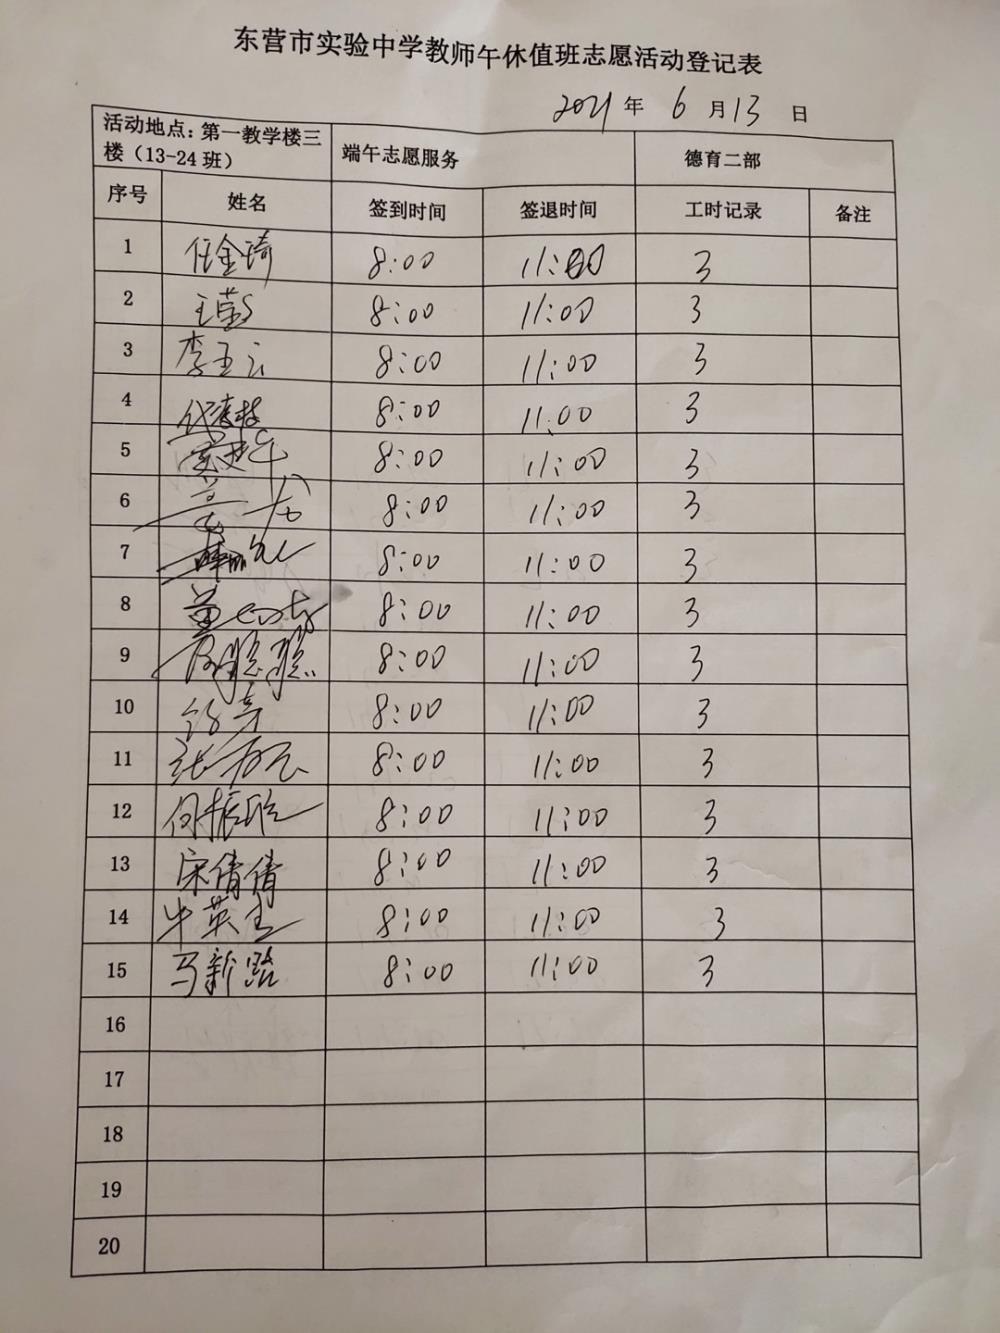 东营市实验中学教师午休值班志愿活动登记表
2021 年 6 月 13 日
活动地点：第一教学楼三楼（13-24 班） 端午志愿服务 德育二部
序号 姓名 签到时间 签退时间 工时记录 备注
1 任金琦 8:00 11:00 3
2 王莹 8:00 11:00 3
3 李玉云 8:00 11:00 3
4 8:00 11:00 3
5 8:00 11:00 3
6 8:00 11:00 3
7 8:00 11:00 3
8 8:00 11:00 3
9 8:00 11:00 3
10 8:00 11:00 3
11 8:00 11:00 3
12 8:00 11:00 3
13 宋倩倩 8:00 11:00 3
14 牛英 8:00 11:00 3
15 马新路 8:00 11:00 3
16
17
18
19
20